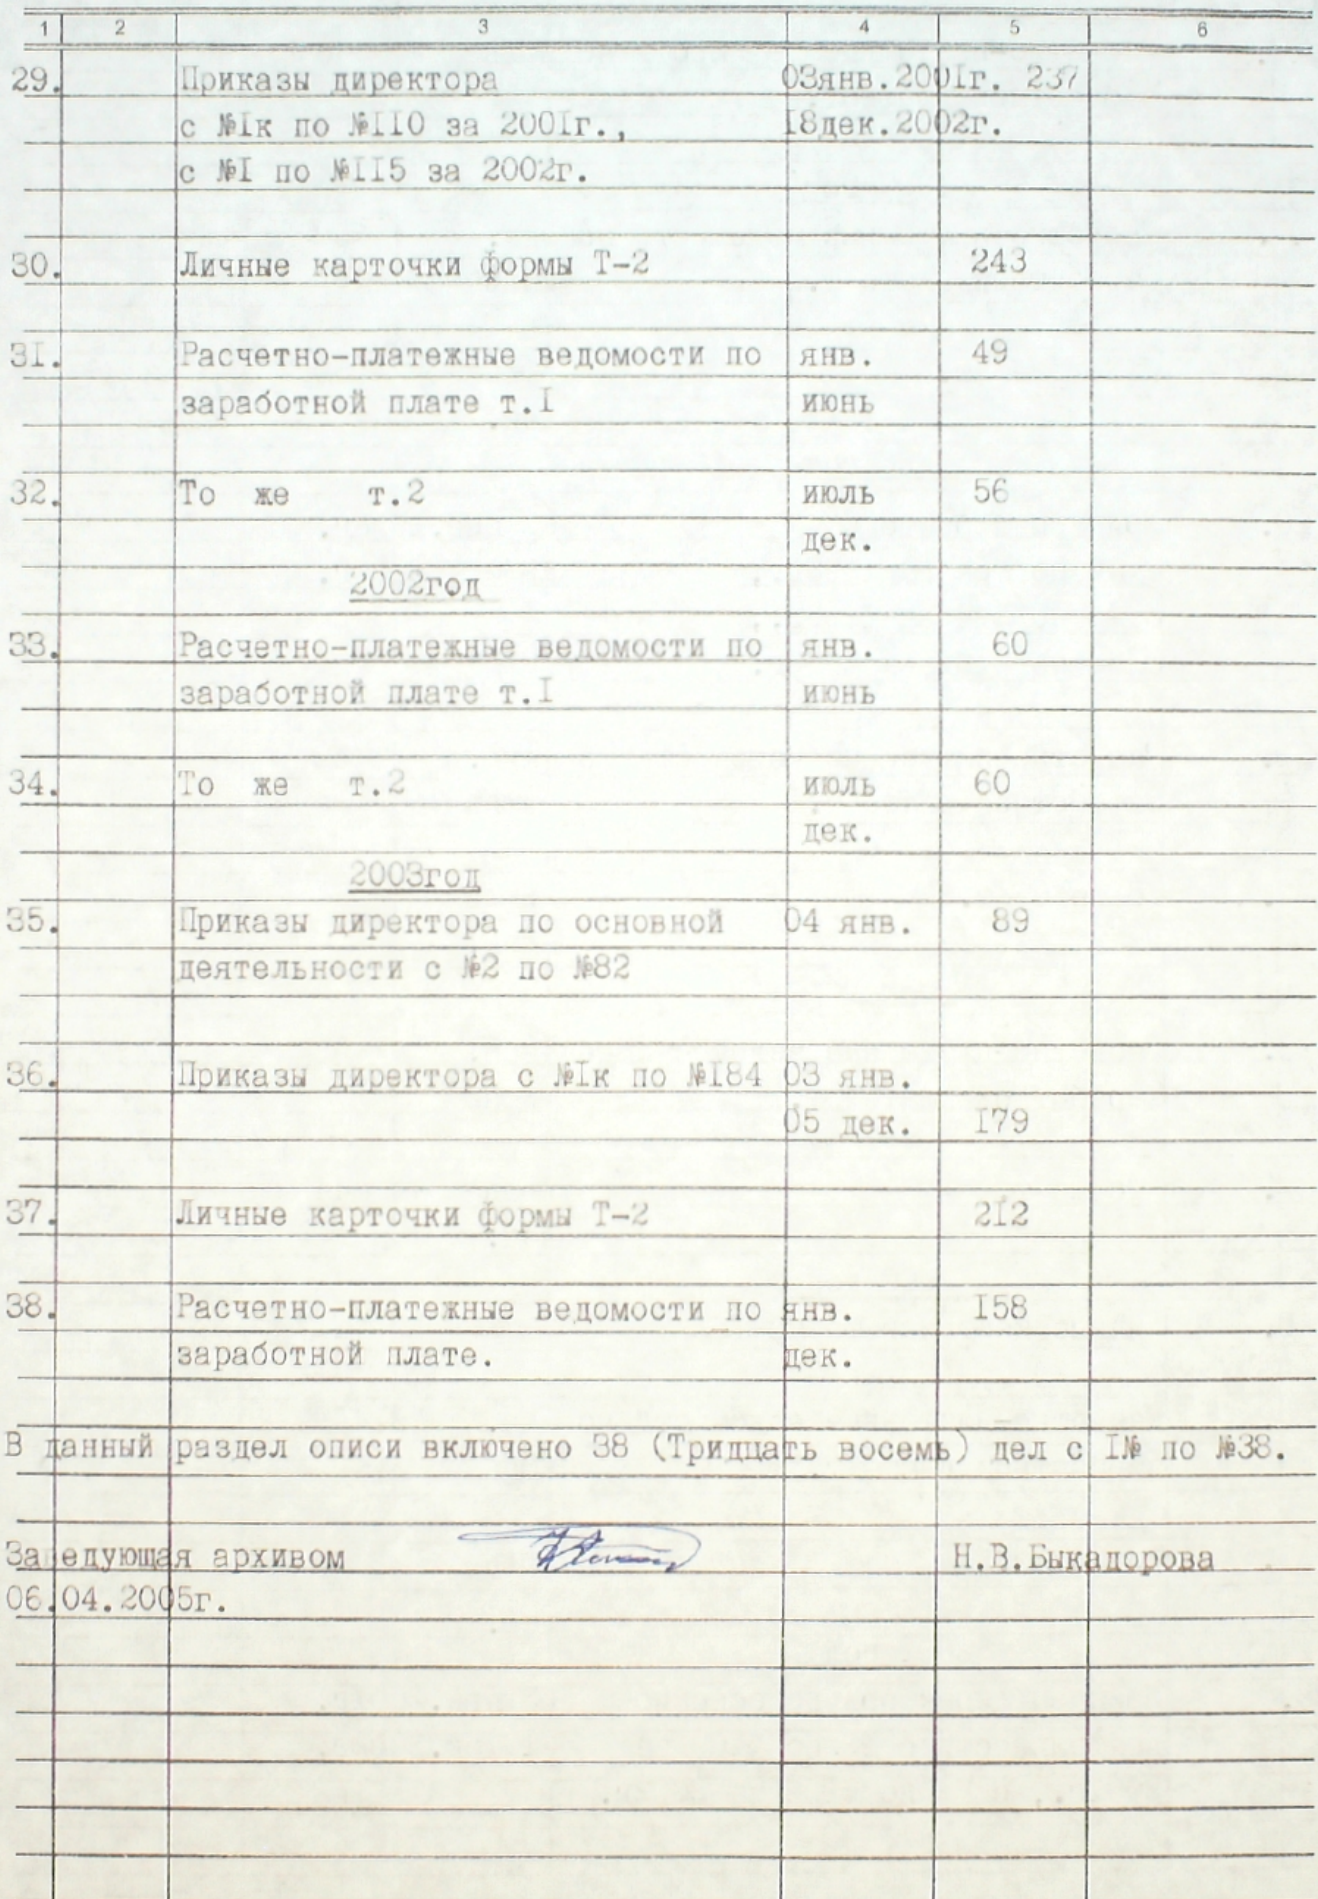 1 2 3 4 5 6
29. Приказы директора 03янв.2001г. 237
с №Iк по №IIO за 2001г., 18дек.2002г.
с №I по №II5 за 2002г.
30. Личные карточки формы Т-2 243
3I. Расчетно-платежные ведомости по янв. 49
заработной плате т.I июнь
32. То же т.2 июль 56
дек.
2002год
33. Расчетно-платежные ведомости по янв. 60
заработной плате т.I июнь
34. То же т.2 июль 60
дек.
2003год
35. Приказы директора по основной 04 янв. 89
деятельности с №2 по №82
36. Приказы директора с №Iк по №I84 03 янв.
05 дек. I79
37. Личные карточки формы Т-2 2I2
38. Расчетно-платежные ведомости по янв. I58
заработной плате. дек.
В данный раздел описи включено 38 (Тридцать восемь) дел с I№ по №38.
Заведующая архивом Н.В.Быкадорова
06.04.2005г.